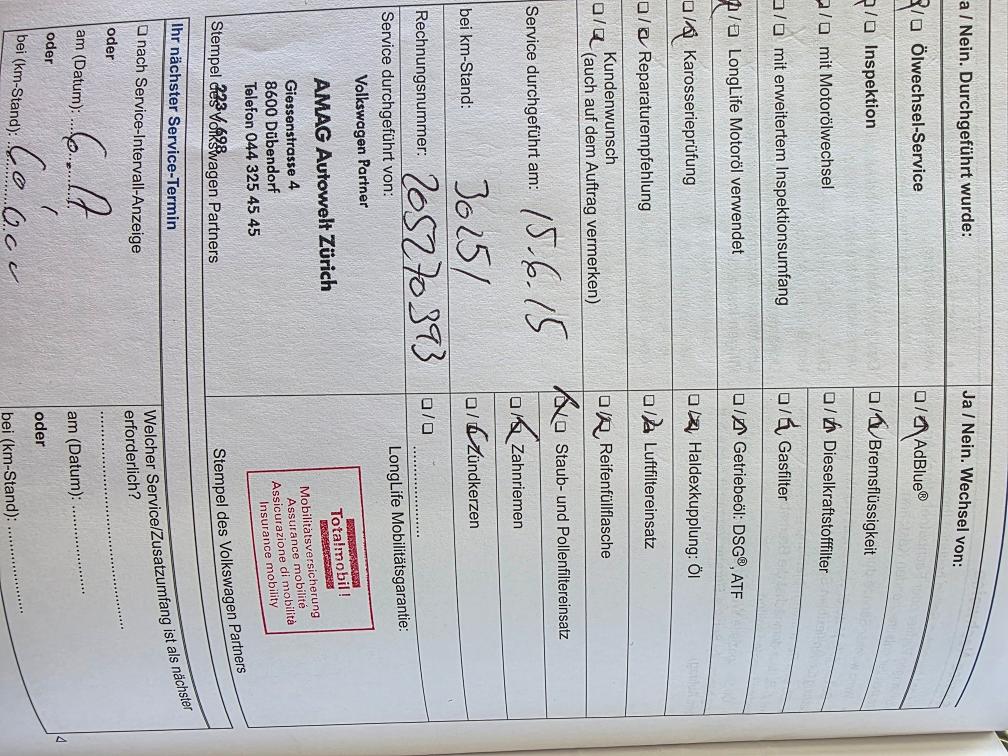 Ja / Nein. Durchgeführt wurde:
☐ Ölwechsel-Service
☐ Inspektion
☐ mit Motorölwechsel
☐ mit erweitertem Inspektionsumfang
☐ LongLife Motoröl verwendet
☐ / Karosserieprüfung
☐ / Reparaturempfehlung
☐ / Kundenwunsch
(auch auf dem Auftrag vermerken)
Service durchgeführt am: 15.6.15
bei km-Stand: 30251
Rechnungsnummer: 205270393
Service durchgeführt von:
Volkswagen Partner
AMAG Autowelt Zürich
Giessenstrasse 4
8600 Dübendorf
Telefon 044 325 45 45
Stempel des Volkswagen Partners
Ja / Nein. Wechsel von:
☐ / AdBlue®
☐ / Bremsflüssigkeit
☐ / Dieselkraftstofffilter
☐ / Gasfilter
☐ / Getriebeöl: DSG®, ATF
☐ / Haldexkupplung: Öl
☐ / Luftfiltereinsatz
☐ / Reifenfüllflasche
/ ☐ Staub- und Pollenfiltereinsatz
☐ / Zahnriemen
☐ / Zündkerzen
☐ / ☐ ..................
LongLife Mobilitätsgarantie:
Totalmobil!
Mobilitätsversicherung
Assurance mobilité
Assicurazione di mobilità
Insurance mobility
Stempel des Volkswagen Partners
Ihr nächster Service-Termin
☐ nach Service-Intervall-Anzeige
oder
am (Datum): 6.17
oder
bei (km-Stand):
Welcher Service/Zusatzumfang ist als nächster
erforderlich?
..................
am (Datum): ..................
oder
bei (km-Stand): ..................